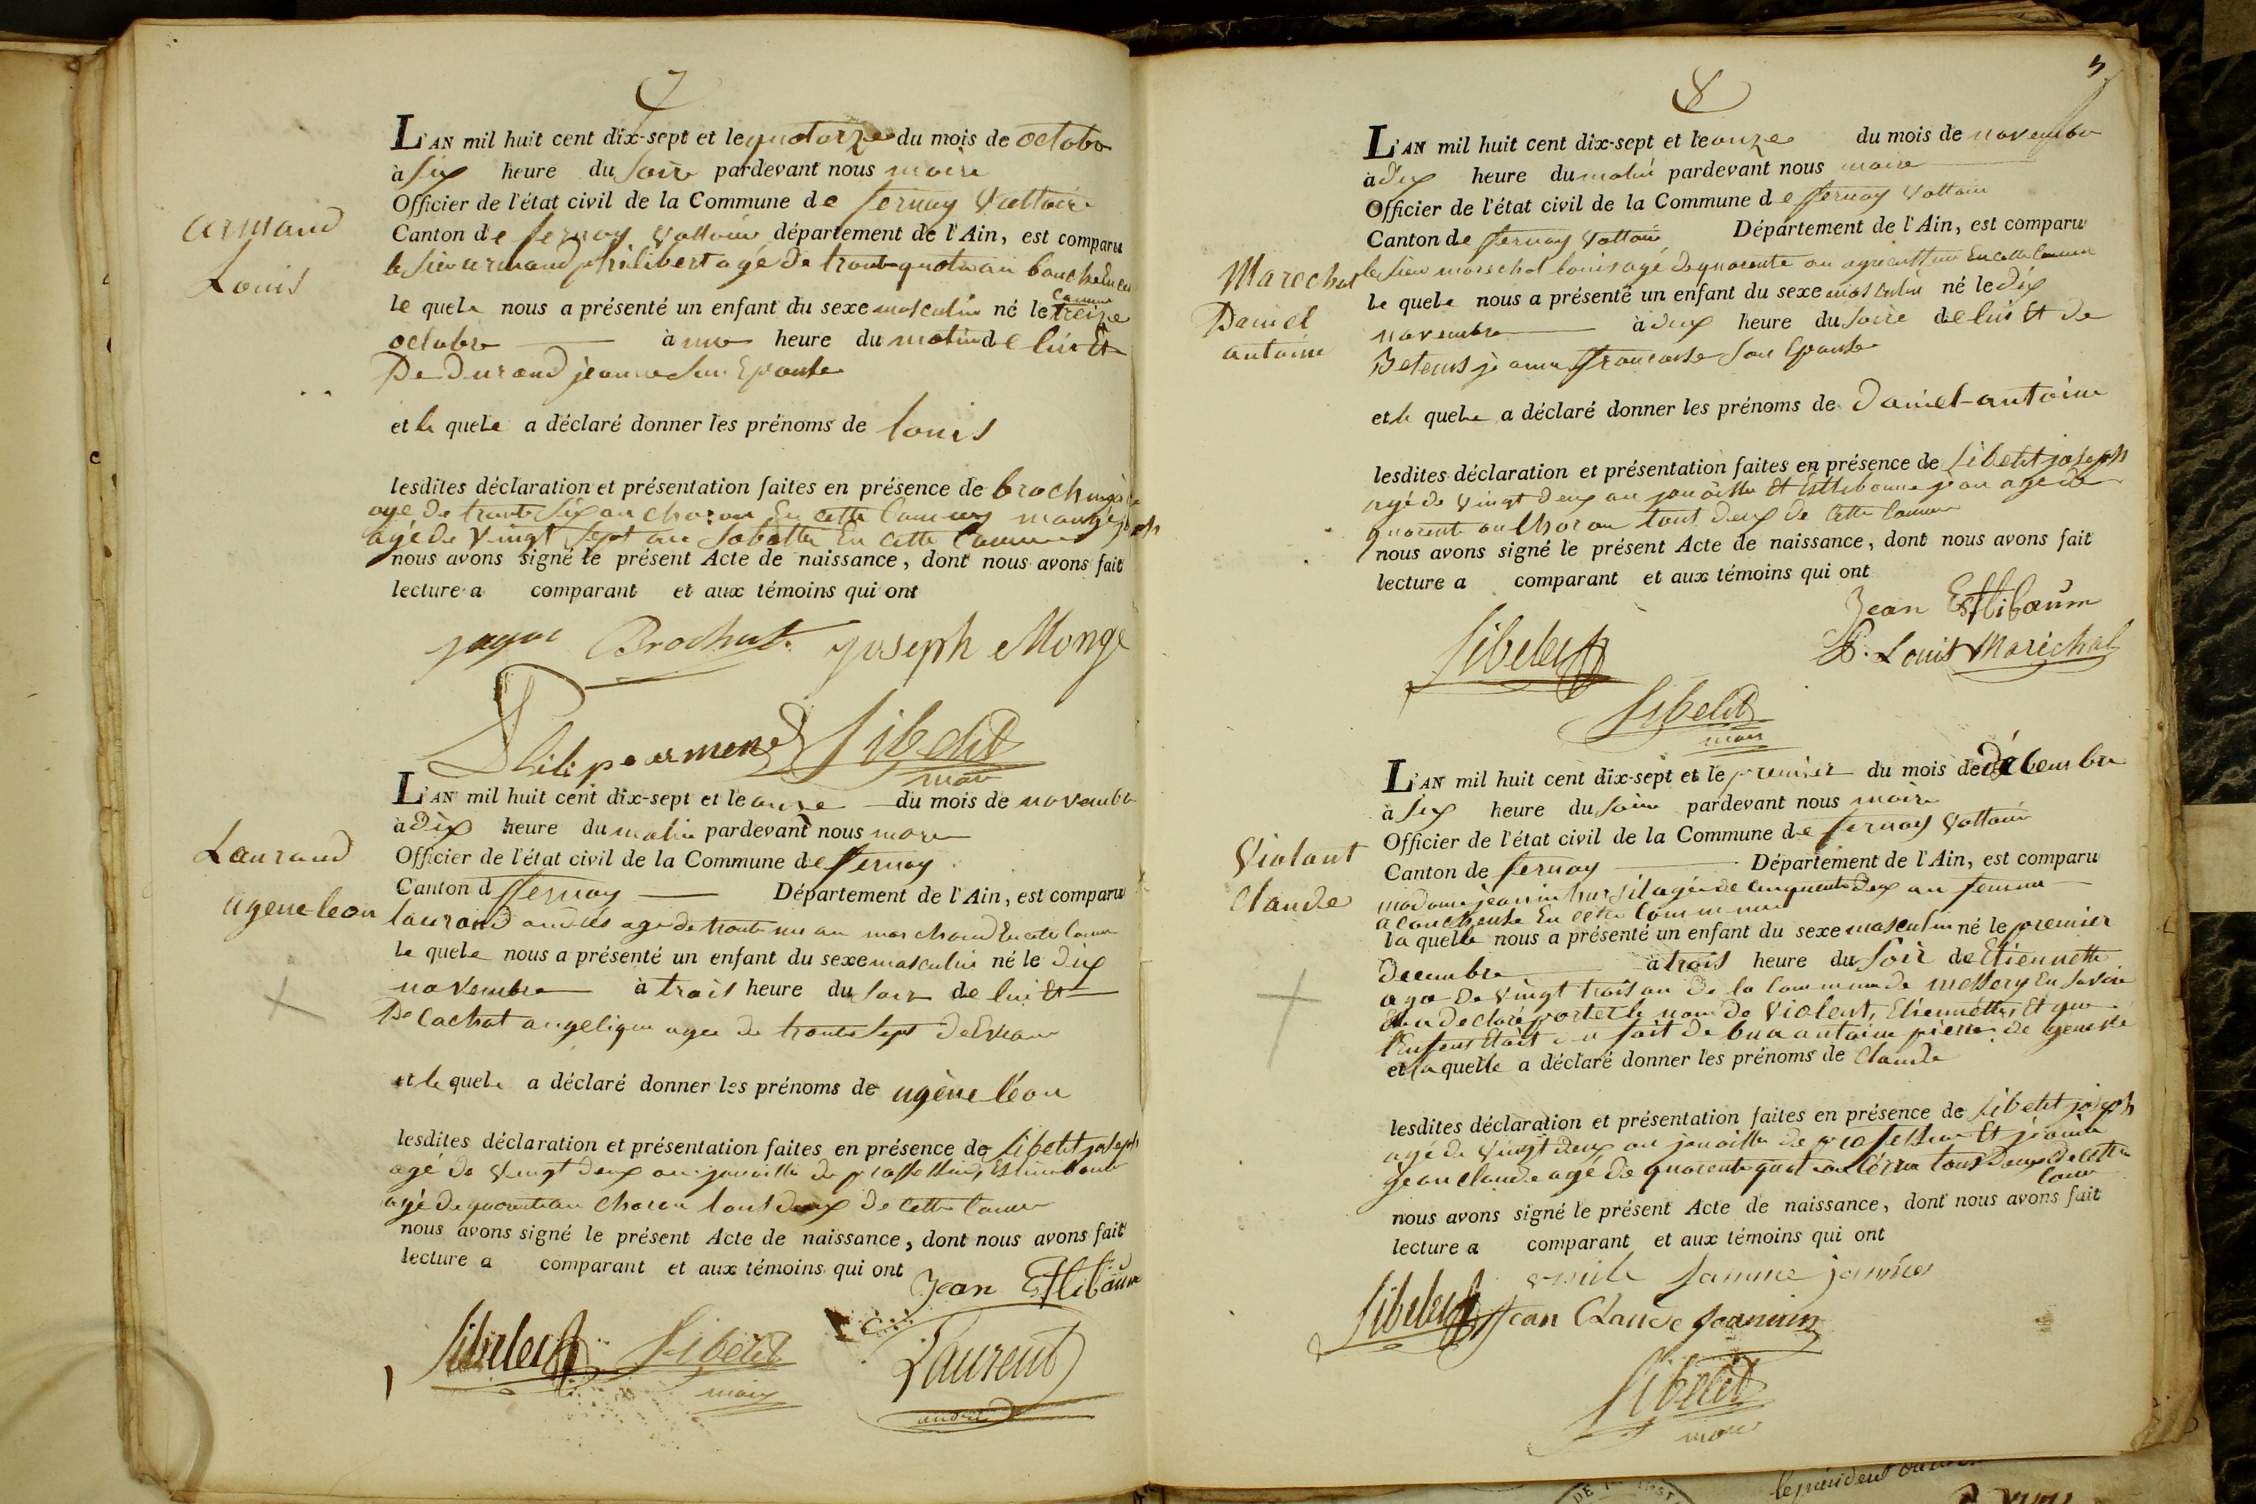 7
L'AN mil huit cent dix-sept et le quatorze du mois de octobre
à six heure du soir pardevant nous maire
Officier de l'état civil de la Commune de fernay Voltaire
Canton de fernay Voltaire département de l'Ain, est comparu
armand
Louis
le sieur armand philibert agé de trente quatre an boucher en cette
commune
le quele nous a présenté un enfant du sexe masculin né le treize
octobre à une heure du matin de lui Et
De Durand jeanne son Epouse
et le quele a déclaré donner les prénoms de louis
lesdites déclaration et présentation faites en présence de
agé de trente six an charon En cette Commune monge joseph
agé de Vingt Sept an Sabottier En cette Commune
nous avons signé le présent Acte de naissance, dont nous avons fait
lecture a comparant et aux témoins qui ont
Brochut joseph Monge
Sibelit
maire
L'AN mil huit cent dix-sept et le onze du mois de novembre
à Dix heure du matin pardevant nous maire
Officier de l'état civil de la Commune de fernay
Canton d fernay Département de l'Ain, est comparu
Laurand
ugene leon
laurand andré agé de trente un an marchand En cette Comune
le quele nous a présenté un enfant du sexe masculin né le dix
novembre à trois heure du soir de lui Et
De Cachat angelique agee de trente sept
et le quele a déclaré donner les prénoms de ugène léon
lesdites déclaration et présentation faites en présence de Sibelit joseph
agé de Vingt deux an
agé de quarente an charon tout deux de cette Comune
nous avons signé le présent Acte de naissance, dont nous avons fait
lecture a comparant et aux témoins qui ont
Jean Esttibaum
Sibelit Sibelit Laurent
maire andré
5
8
L'AN mil huit cent dix-sept et le onze du mois de novembre
à dix heure du matin pardevant nous maire
Officier de l'état civil de la Commune de fernay Voltaire
Canton de fernay Voltaire Département de l'Ain, est comparu
Marechal
Daniel
antoine
le Sieur marechal louis agé de quarente an agriculteur En cette Commune
le quele nous a présenté un enfant du sexe masculin né le dix
novembre à deux heure du soire de lui Et de
Betems jeanne francoise son Epouse
et le quele a déclaré donner les prénoms de Daniel-antoine
lesdites déclaration et présentation faites en présence de Sibelit joseph
agé de Vingt deux an Et Esttibaume jean agé de
quarente an Charon tout deux de Cette Comune
nous avons signé le présent Acte de naissance, dont nous avons fait
lecture a comparant et aux témoins qui ont
Jean Esttibaum
Sibelit Louis Maréchal
Sibelit
maire
L'AN mil huit cent dix-sept et le premier du mois de Décembre
à six heure du soire pardevant nous maire
Officier de l'état civil de la Commune de fernay Voltaire
Canton de fernay Département de l'Ain, est comparu
Violant
Claude
madame jeannin agée de cinquente deux an femme
acoucheuse En cette Commune
la quelle nous a présenté un enfant du sexe masculin né le premier
decembre à trois heure du Soir de Etiennette
age De Vingt trois an De la Commune de messery En Savoie
a declaré porter le nom de Violent, Etiennette, Et que
l'Enfens Etait du fait de antoine pierre de geneve
et la quelle a déclaré donner les prénoms de Claude
lesdites déclaration et présentation faites en présence de Sibelit joseph
agé de Vingt deux an de profession Et jeanin
jean claude agé de quarente quatre an tout Deux De cette
Comune
nous avons signé le présent Acte de naissance, dont nous avons fait
lecture a comparant et aux témoins qui ont
Sibelit Jean Claude Jeannin
Sibelit
maire
le président